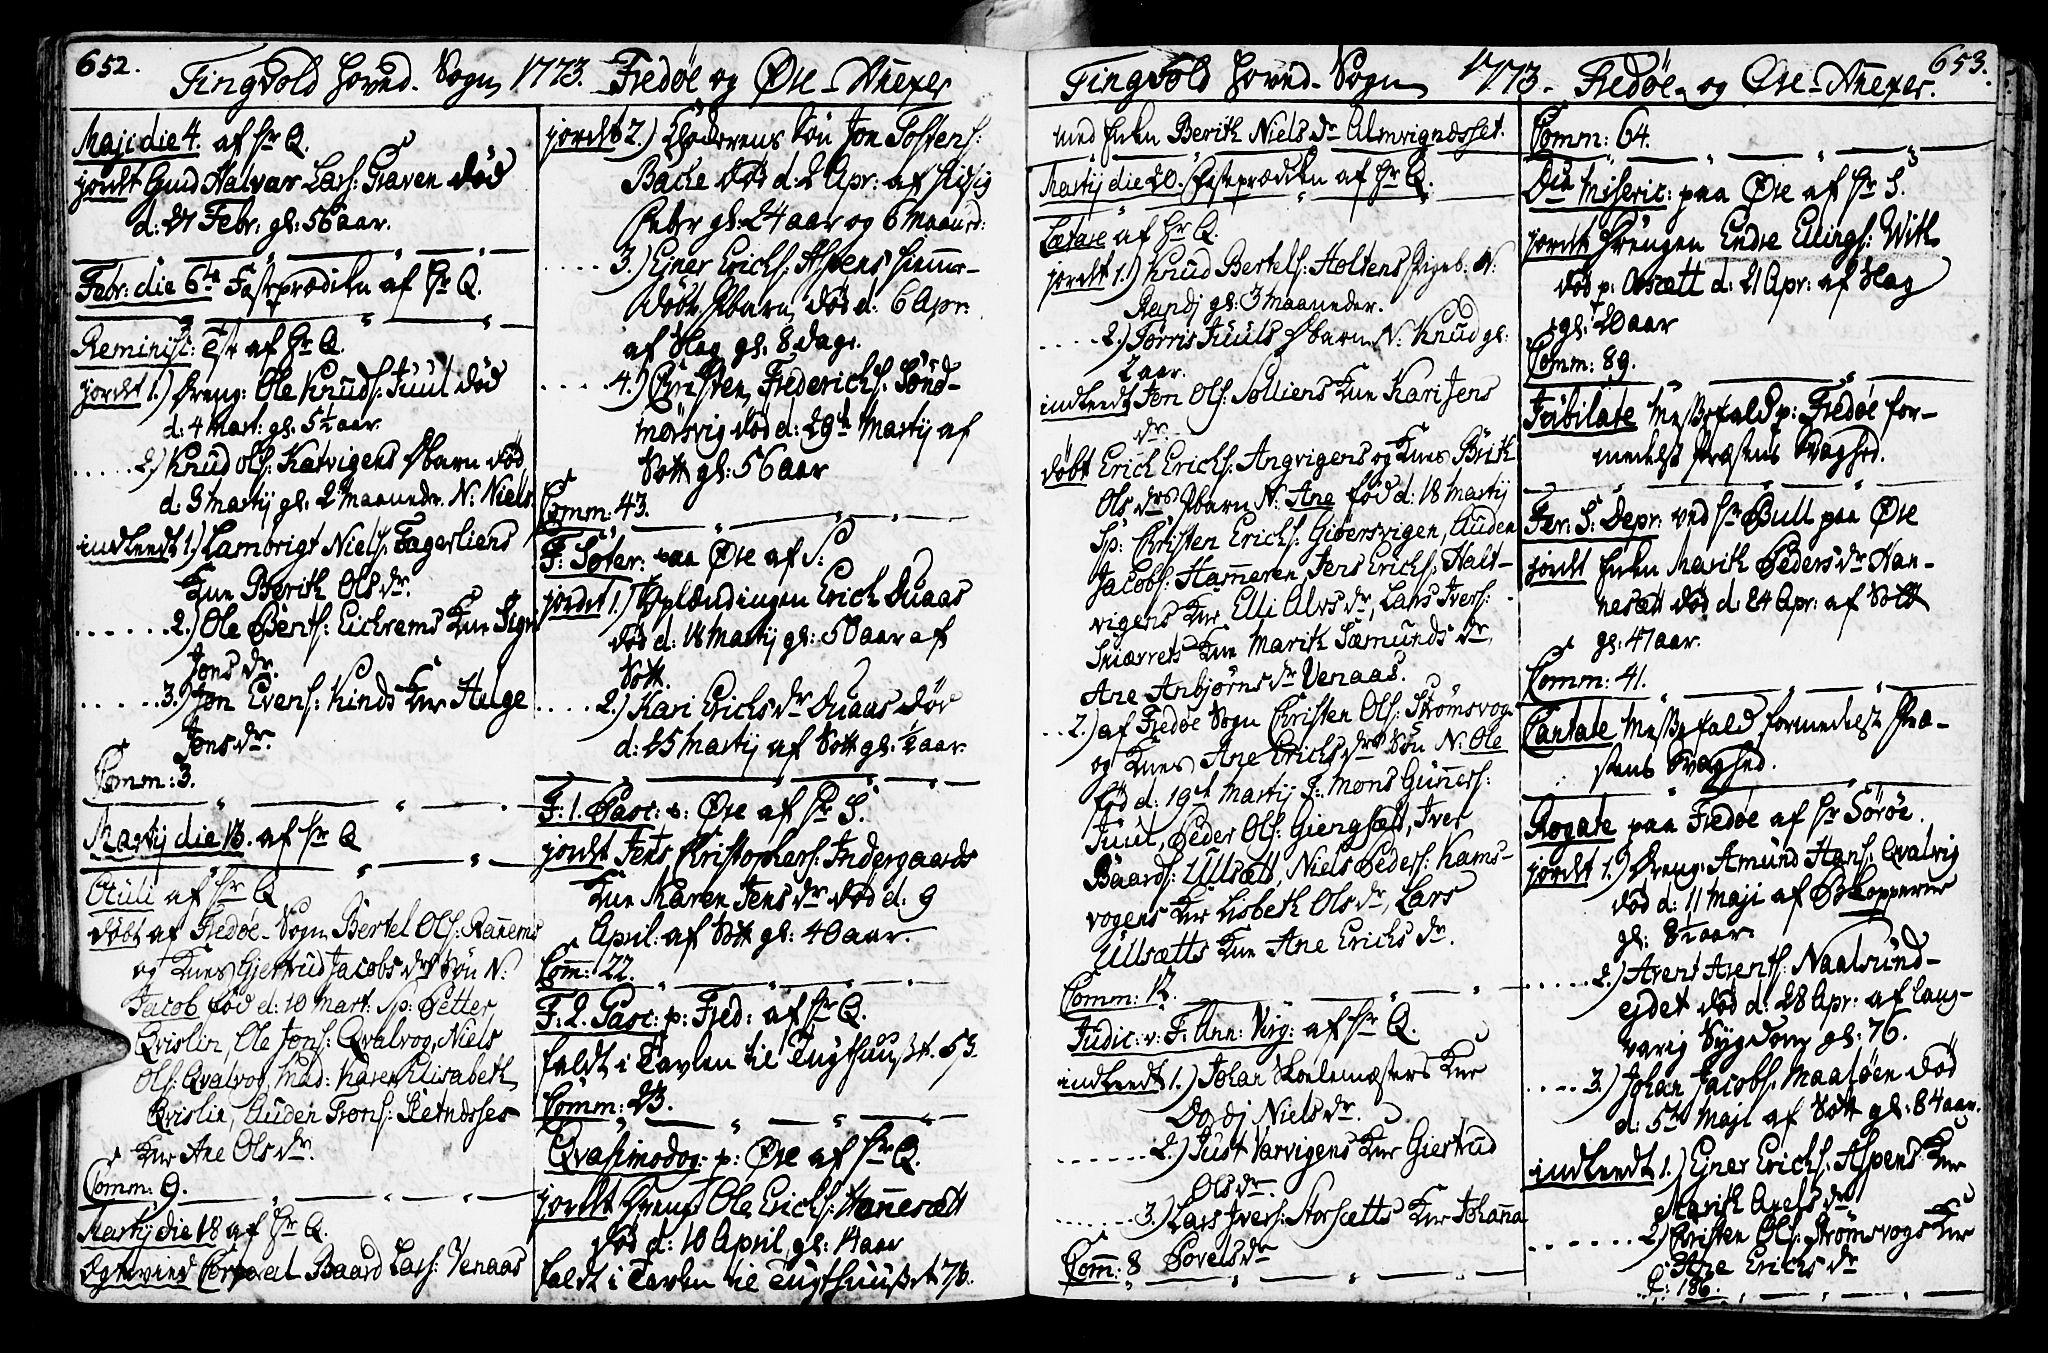 652.
Tingvold Hoved-Sogn 1773. Fredøe og Øre-Annexer
Maji die 4. af Hr Q.
jordt Gud Halvar Lars: Graven død
d: 27 Febr: gl: 56 aar.
Febr: die 6te Fasteprædiken af Hr Q.
Reminisc: af Hr Q.
jordt 1.) Dreng: Ole Knuds: Juul død
d: 4 Mart: gl: 5½ aar.
2.) Knud Ols: Katvigens Dbarn død
d: 3 Martij gl: 2 Maaneder N: Niels
indleedt 1.) Lambrigt Niels: Fagerliens
Kune Berith Ols dr.
2.) Ole Bents: Eickrems Kune Sign
Jons dr.
3.) Jon Evens: Kinds Kne Helge
Jons dr.
Comm: 3.
Martij die 13. af Hr Q
Oculi af Hr Q
døbt af Fredøe-Sogn Bertel Ols: Ranems
og Knes Giertrud Jacobs drs Søn N:
Jacob fød d: 10 Mart: Sp: Petter
Qvislin, Ole Jons: Qvalvog, Niels
Ols: Qvalvog, Mad: Karen Elisabeth
Qvislin, Auden Trons: Reinsses
Kne Ane Ols dr.
Comm: 9.
Martij die 18 af Hr Q.
Corporal Baard Lars: Venaas
jordt 2.) Søn Jon Tostens:
Bache død d: 2 Apr: af hidsig
Feber gl: 24 aar og 6 Maaned:
3.) Ejner Erichs: Aspens hiemme-
døbte Pbarn, død d: 6 Apr:
af Slag gl: 8 dage.
4.) Christen Frederichs: Sønd-
mørsvig død d: 29de Martij af
Sott gl: 56 aar
Comm: 43.
F: Søter: paa Øre af S:
jordt 1.) Oplændingen Erich Duaas
død d: 18 Martij gl: 50 aar af
Sott.
2.) Kari Erichs dr Duaas død
d: 25 Martij af Sott gl: ½ aar.
F: 1. Pasc: Øre af Hr S.
jordt Jens Christophers: Indergaards
Kune Karen Jens dr død d: 9
April: af Sott gl: 40 aar.
Com: 22.
F: 2. Pasc: p: Fred: af Hr Q.
faldt i Tavlen til Tugthuuset 53.
Comm: 23.
Qvasimodog: p: Øre af Hr Q.
jordt Dreng Ole Erichs: Hannesætt
død d: 10 April gl: 14 aar
faldt i Tavlen til Tugthuuset 73.
653.
Tingvold Hoved-Sogn 1773. Fredøe- og Øre-Annexer.
med Enken Berith Niels dr Almvigndsset.
Martij die 20. Fasteprædiken af Hr Q.
Lætare af Hr Q.
jordt 1.) Knud Bertels: Holtens Pigeb: N:
Randj gl: 3 Maaneder.
2.) Torris Juuls Dbarn N: Knud gl:
2 aar.
indleedt Jon Ols: Solliens Kune Kari Jens
dr.
døbt Erich Erichs: Angvigens og Knes Brith
Ols drs Pbarn N: Ane fød d: 18 Martij
Sp: Christen Erichs: Giørsvigen, Auden
Jacobs: Hammeren, Jens Erichs: Halt-
vigens Kne Elli Alvs dr, Lars Ivers:
Kne Marith Sæmunds dr,
Ane Anbjørns dr Venaas.
2.) af Fredøe Sogn Christen Ols: Strømsvog
og Knes Ane Erichs drs Søn N: Ole
fød d: 19de Martij F: Mons Gunners:
Juul, Peder Ols: Giengsæt, Iver
Baards: Ullsætt, Niels Peders: Kams-
vogens Kne Lisbeth Ols dr, Lars
Ullsætts Kne Ane Erichs dr.
Comm: 12.
Judic: v: F: Ann: Virg: af Hr Q.
indleedt 1.) Johan Skolemæsters Kne
Dordj Niels dr.
2.) Just Varvigens Kne Giertrud
Ols dr.
3.) Lars Ivers: Storsætts Kne Johanna
Povels dr
Com: 8
Comm: 64.
Dca Miseric: paa Øre af Hr S.
jordt Drengen Endre Ellings: With
død p: Aasætt d: 21 Apr: af Slag
gl: 20 aar
Comm: 89.
Jubilate Messefald p: Fredøe for-
medelst Præstens Svaghed.
Fer: S: Depr: ved Hr Bull paa Øre
jordt Enken Marith Peders dr Han-
nesæt død d: 24 Apr: af Sott
gl: 47 aar.
Comm: 41.
Cantate Messefald formedelst Præ-
stens Svaghed.
Rogate paa Fredøe af Hr Sørøe.
jordt 1.) Dreng: Amund Hans: Qvalvig
død d: 11 Maji af B:Kopperne
gl: 8½ aar.
2.) Arent Arents: Naalsund-
ejdet død d: 28 Apr: af lang-
varig Sygdom gl: 76.
3.) Johan Jacobs: Maaløen død
d: 5te Maji af Sott gl: 84 aar.
indleedt 1.) Ejner Erichs: Aspens Kne
Marith Axels dr
2.) Christen Ols: Strømsvogs Kne
Ane Erichs dr
C: 186.